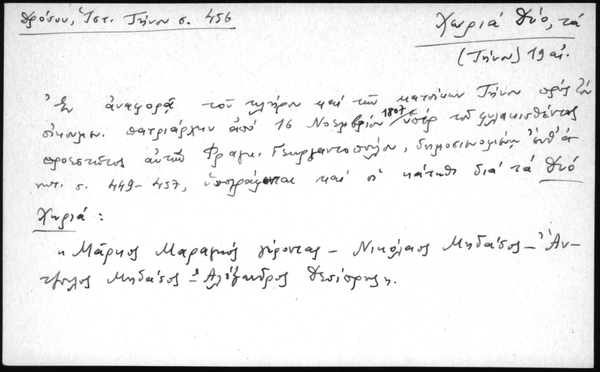 Δρόσου, Ἱστ. Τήνου σ. 456
Χωριά Δύο, τά
(Τήνου) 19 αἰ.
Ἐν ἀναφορᾷ τοῦ κλήρου καί τῶν κατοίκων Τήνου πρός τόν
οἰκουμ. πατριάρχην ἀπό 16 Νοεμβρίου 1807 ὑπέρ τοῦ φυλακισθέντος
προεστῶτος αὐτῶν Φραγκ. Γεωργαντοπούλου, δημοσιευομένῃ ἐνθ' ἀ-
νωτ. σ. 449-457, ὑπογράφονται καί οἱ κάτωθι διά τά Δύο
Χωριά:
"Μάρκος Μαραγκός γέροντας - Νικόλαος Μηδάσος - Ἀν-
τώνιος Μηδάσος - Ἀλέξανδρος